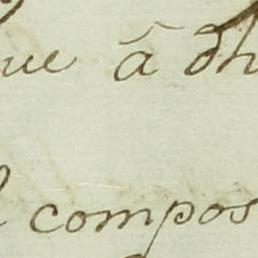 ue ā dh
compos